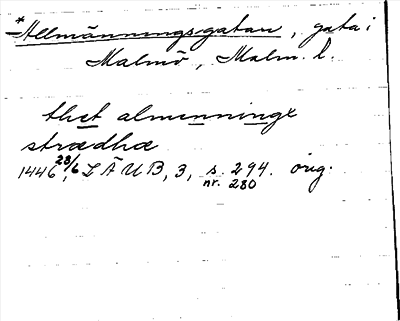 *Allmänningsgatan, gata i
Malmö, Malm. l.
thet almenninge
strædhæ
1446 28/6, LÄUB, 3, s. 294. orig.
nr. 280